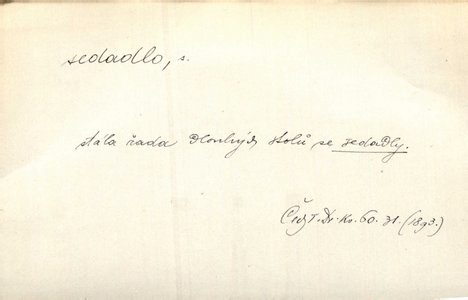 sedadlo, s.
stála řada dlouhých stolů se sedadly.
Kn. 60. 31. (1893.)